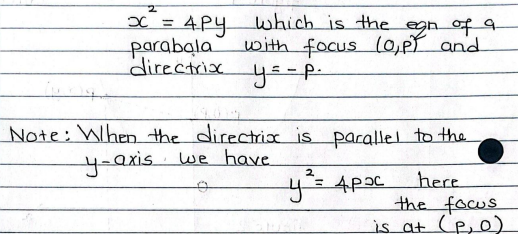 x² = 4py which is the eqn of a
parabola with focus (0,p) and
directrix y = -p.
Note: When the directrix is parallel to the
y-axis we have
y² = 4px here
the focus
is at (p,0)